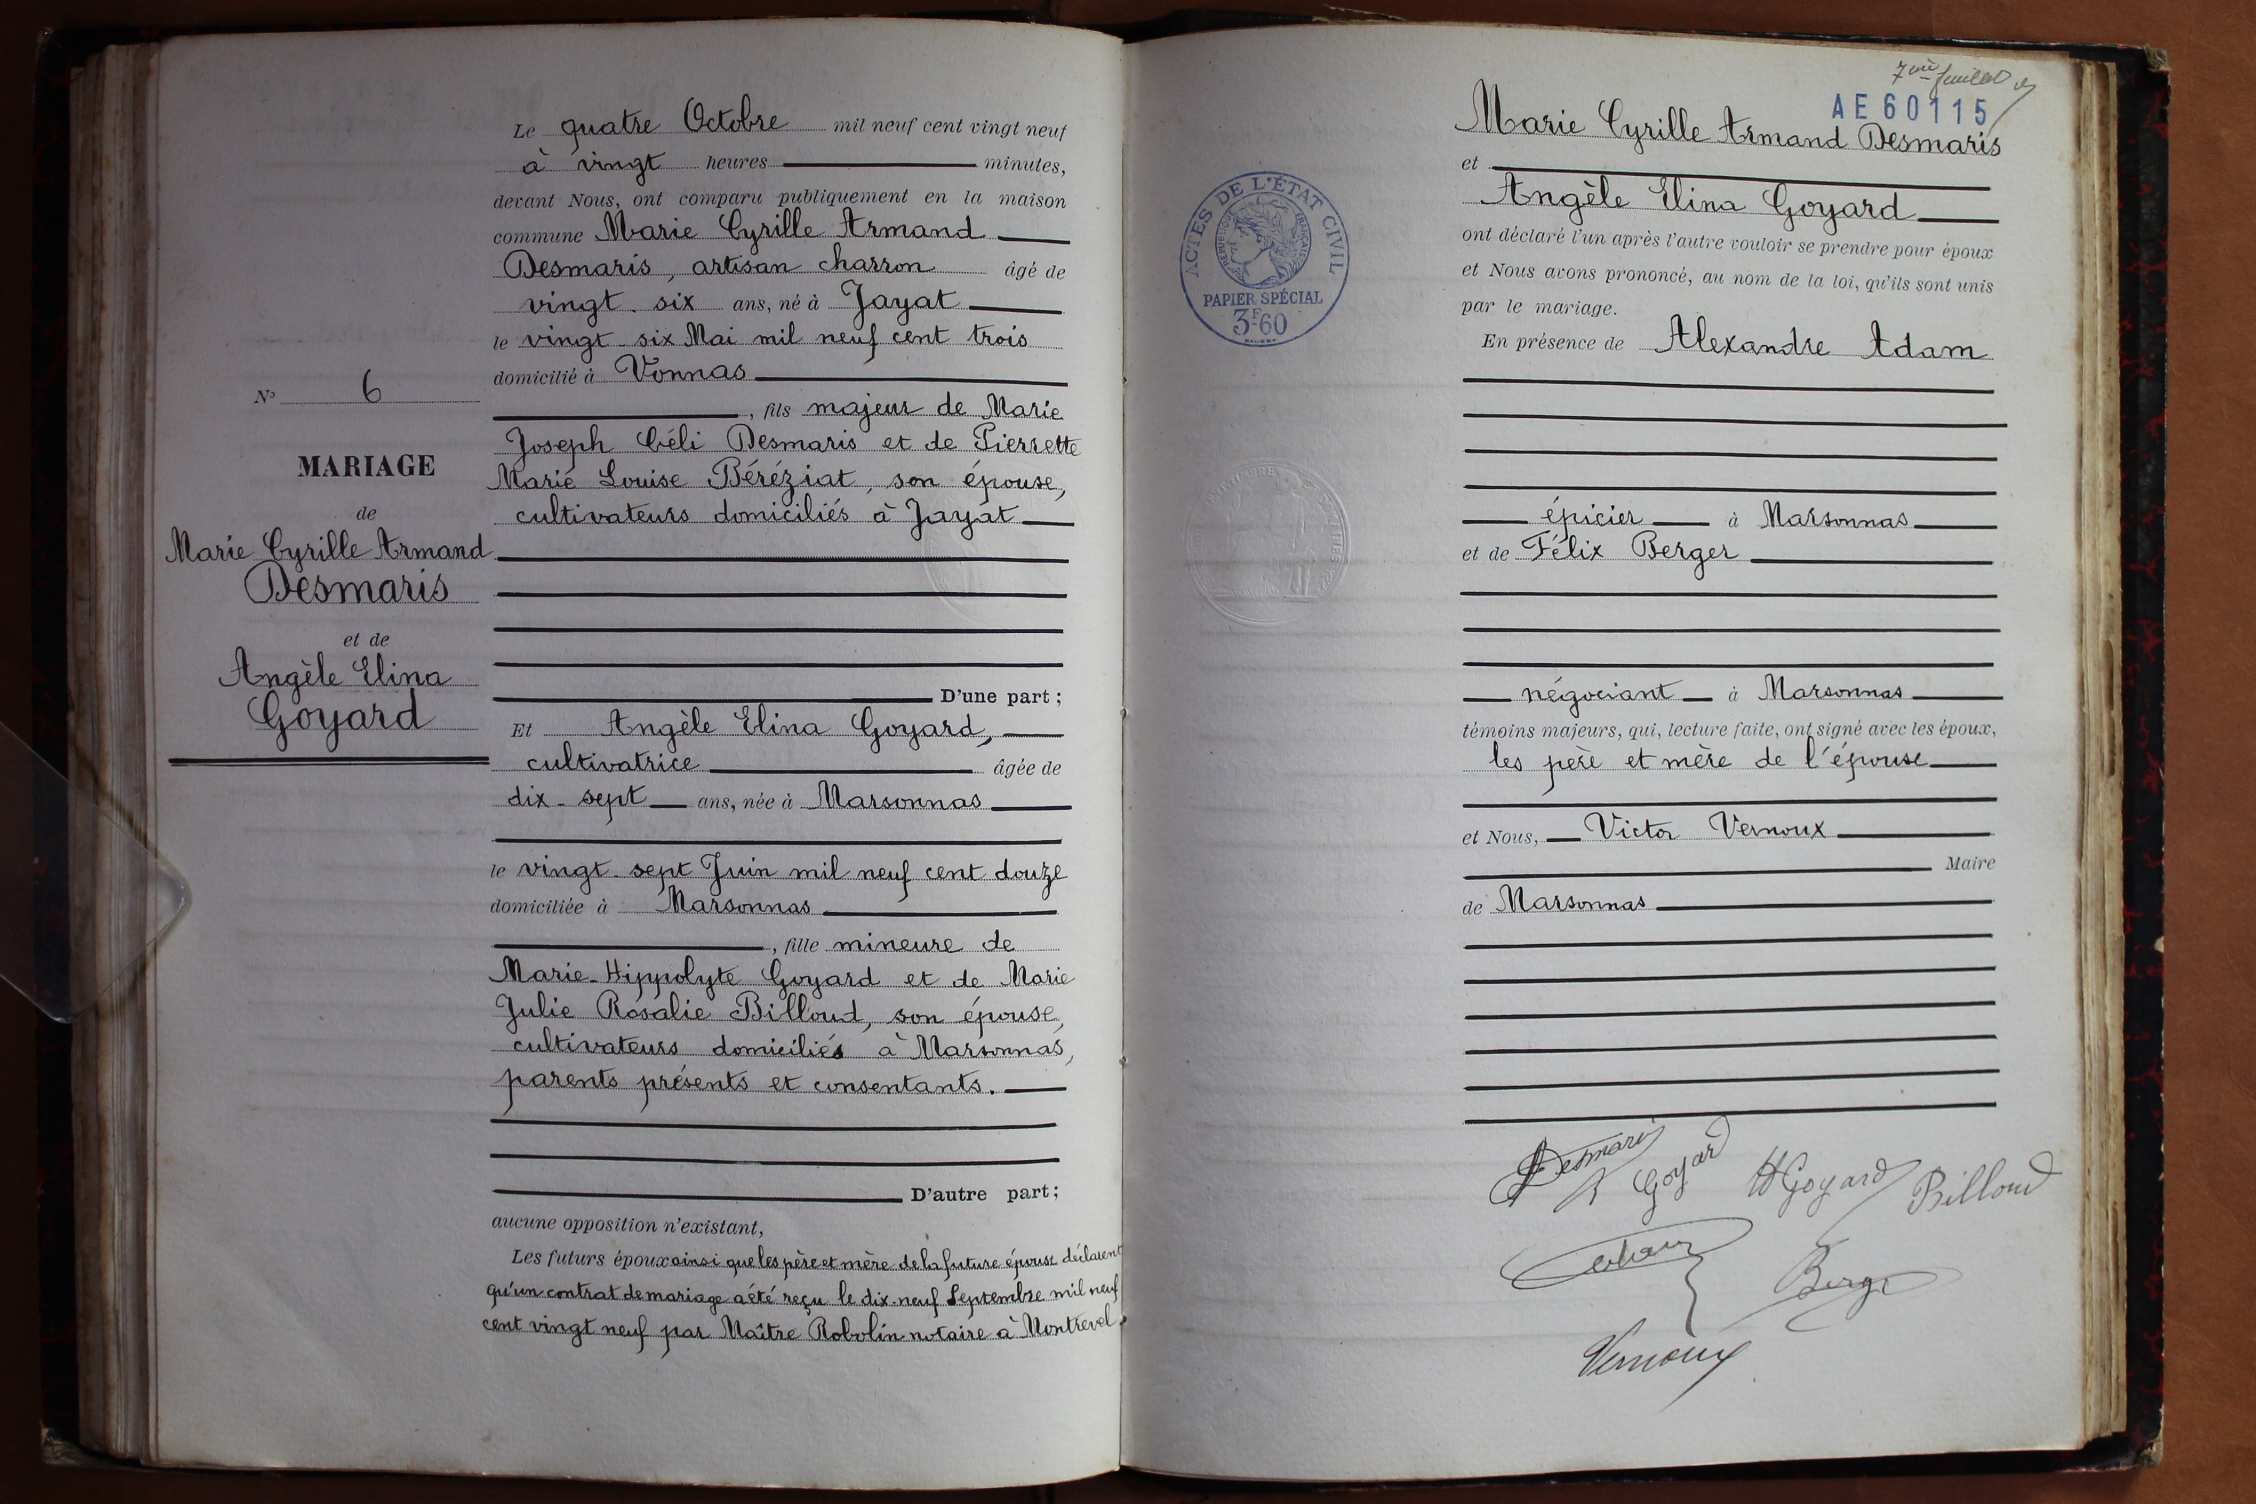 Le quatre Octobre mil neuf cent vingt neuf
à vingt heures minutes,
devant Nous, ont comparu publiquement en la maison
commune Marie Cyrille Armand
Desmaris, artisan charron âgé de
vingt-six ans, né à Jayat
le vingt-six Mai mil neuf cent trois
domicilié à Vonnas
, fils majeur de Marie
Joseph Céli Desmaris et de Pierrette
Marie Louise Béréziat, son épouse,
cultivateurs domiciliés à Jayat
D'une part;
Et Angèle Elina Goyard,
cultivatrice âgée de
dix-sept ans, née à Marsonnas
le vingt-sept Juin mil neuf cent douze
domiciliée à Marsonnas
, fille mineure de
Marie-Hippolyte Goyard et de Marie
Julie Rosalie Billoud, son épouse,
cultivateurs domiciliés à Marsonnas,
parents présents et consentants.
D'autre part;
aucune opposition n'existant,
Les futurs époux ainsi que les père et mère de la future épouse déclarent
qu'un contrat de mariage a été reçu le dix-neuf Septembre mil neuf
cent vingt neuf par Maître Robolin notaire à Montrevel.
N° 6
MARIAGE
de
Marie Cyrille Armand
Desmaris
et de
Angèle Elina
Goyard
7me feuillet
AE 60115
Marie Cyrille Armand Desmaris
et
Angèle Elina Goyard
ont déclaré l'un après l'autre vouloir se prendre pour époux
et Nous avons prononcé, au nom de la loi, qu'ils sont unis
par le mariage.
En présence de Alexandre Adam
épicier à Marsonnas
et de Félix Berger
négociant à Marsonnas
témoins majeurs, qui, lecture faite, ont signé avec les époux,
les père et mère de l'épouse
et Nous, Victor Vernoux
Maire
de Marsonnas
ACTES DE L'ÉTAT CIVIL
RÉPUBLIQUE FRANÇAISE
PAPIER SPÉCIAL
3F60
Desmaris
A Goyard
H Goyard
Billoud
Berger
Vernoux